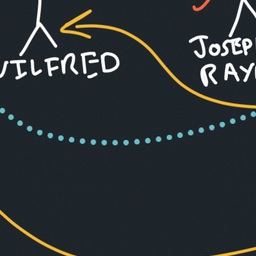 WILFRED
JOSEPH
RAY